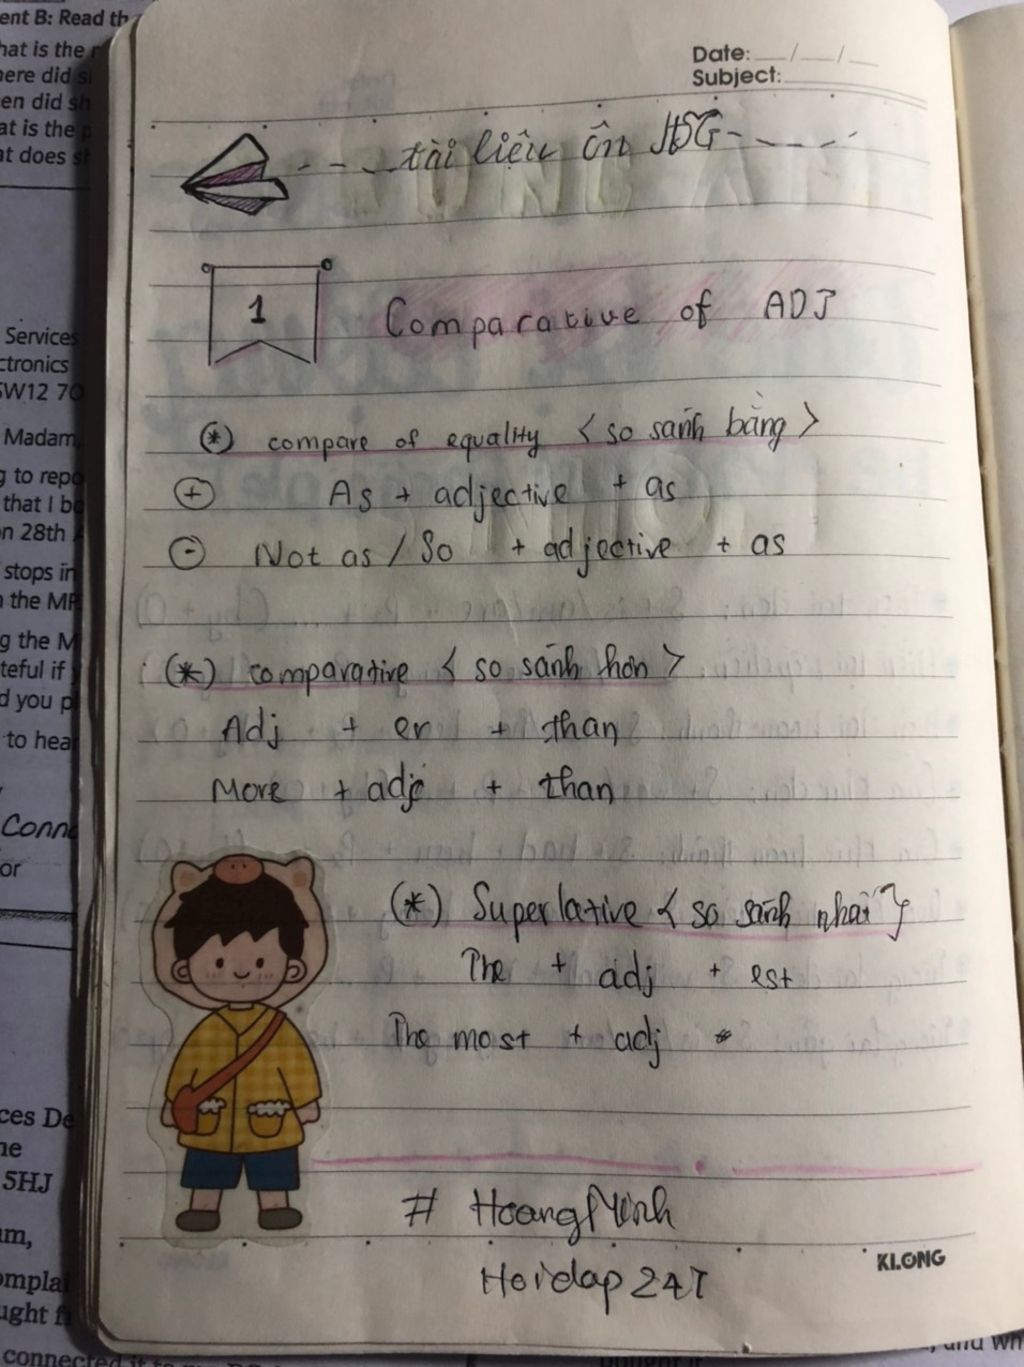 ent B: Read th
hat is the
here did s
en did sh
at is the p
at does s
Services
ctronics
SW12 7
Madam,
g to repo
that I bo
n 28th
stops in
the MP
g the M
teful if y
d you p
to hear
Conn
or
ces De
ne
5HJ
am,
ompla
ught f
connected it to
Date: __/__/__
Subject:
tài liệu ôn HSG
1
Comparative of ADJ
(*) compare of equality < so sánh bằng >
(+) As + adjective + as
(-) Not as / So + adjective + as
(*) comparative < so sánh hơn >
Adj + er + than
More + adj + than
(*) Superlative < so sánh nhất >
The + adj + est
The most + adj
# HoangMinh
Hoidap247
KLONG
, and wh